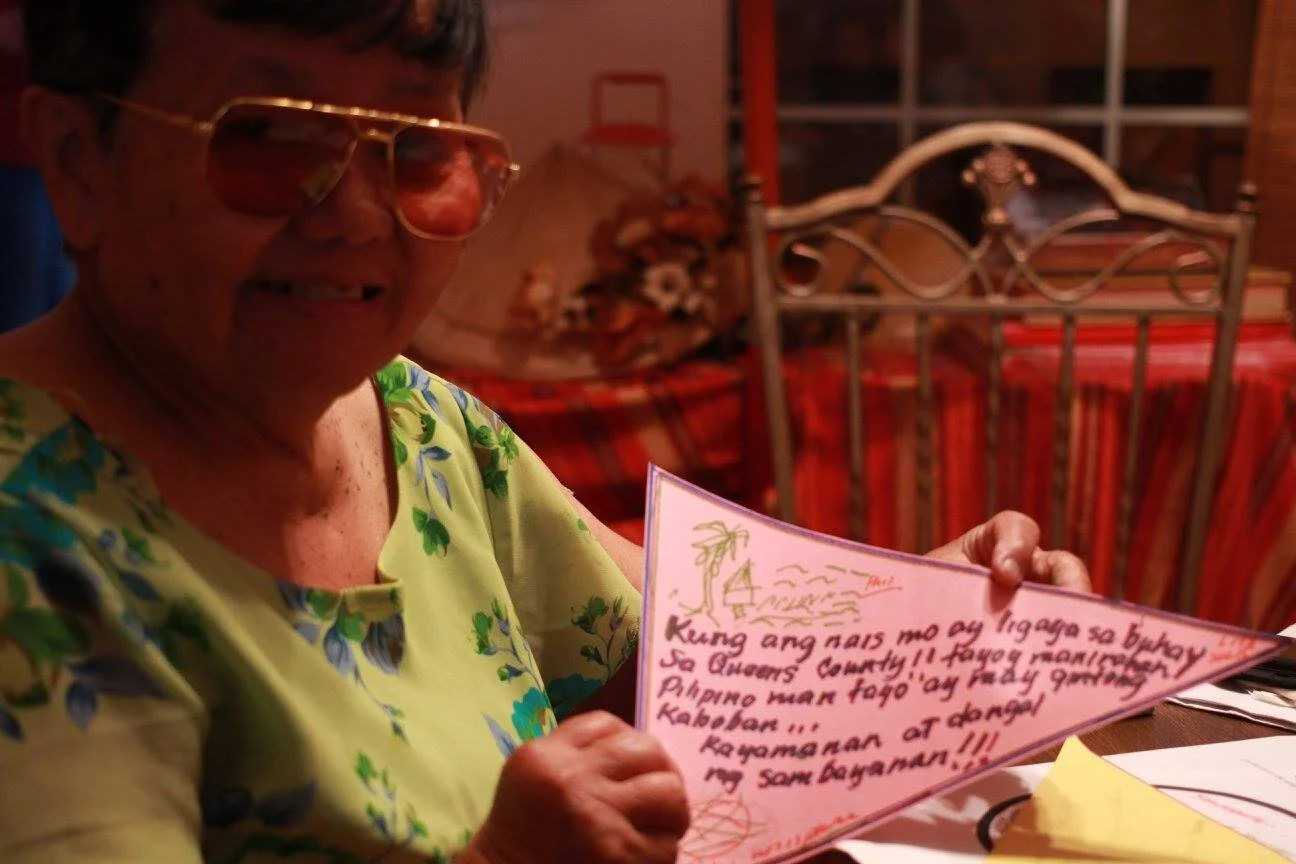 Kung ang nais mo ay ligaya sa buhay
Sa Queens County!! tayoy manirahan,
Pilipino man tayo" ay may gintong
Kaboban...
Kayamanan at dangal
ng sambayanan!!!